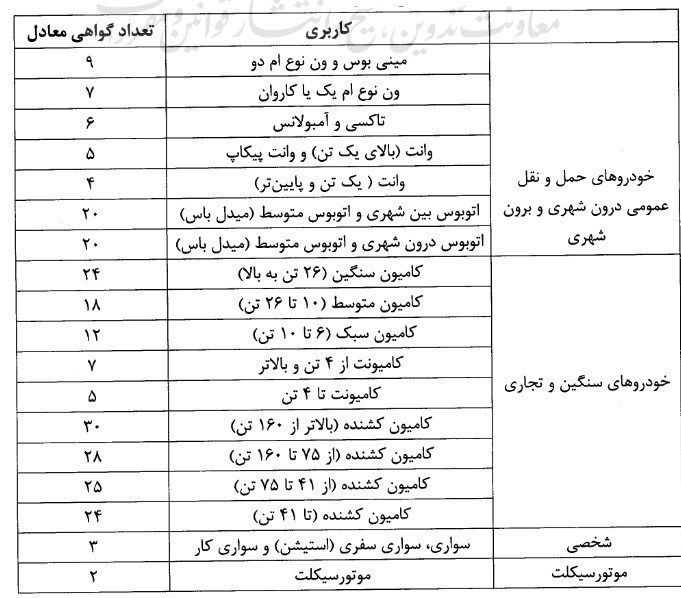 معاونت تدوین، تنقیح و انتشار قوانین و مقررات
کاربری	تعداد گواهی معادل
خودروهای حمل و نقل عمومی درون شهری و برون شهری
مینی بوس و ون نوع ام دو	۹
ون نوع ام یک یا کاروان	۷
تاکسی و آمبولانس	۶
وانت (بالای یک تن) و وانت پیکاپ	۵
وانت ( یک تن و پایین‌تر)	۴
اتوبوس بین شهری و اتوبوس متوسط (میدل باس)	۲۰
اتوبوس درون شهری و اتوبوس متوسط (میدل باس)	۲۰
خودروهای سنگین و تجاری
کامیون سنگین (۲۶ تن به بالا)	۲۴
کامیون متوسط (۱۰ تا ۲۶ تن)	۱۸
کامیون سبک (۶ تا ۱۰ تن)	۱۲
کامیونت از ۴ تن و بالاتر	۷
کامیونت تا ۴ تن	۵
کامیون کشنده (بالاتر از ۱۶۰ تن)	۳۰
کامیون کشنده (از ۷۵ تا ۱۶۰ تن)	۲۸
کامیون کشنده (از ۴۱ تا ۷۵ تن)	۲۵
کامیون کشنده (تا ۴۱ تن)	۲۴
شخصی	سواری، سواری سفری (استیشن) و سواری کار	۳
موتورسیکلت	موتورسیکلت	۲